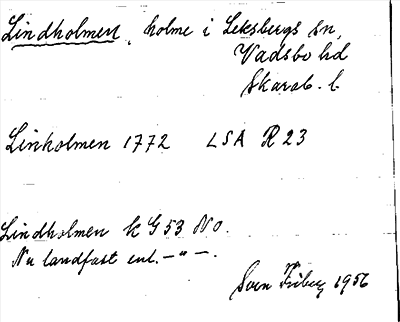 Lindholmen, holme i Leksbergs sn,
Vadsbo hd
Skarab. l.
Linholmen 1772 LSA R 23
Lindholmen k G 53 NO.
Nu landfast enl. —"—.
Sven Friberg 1956